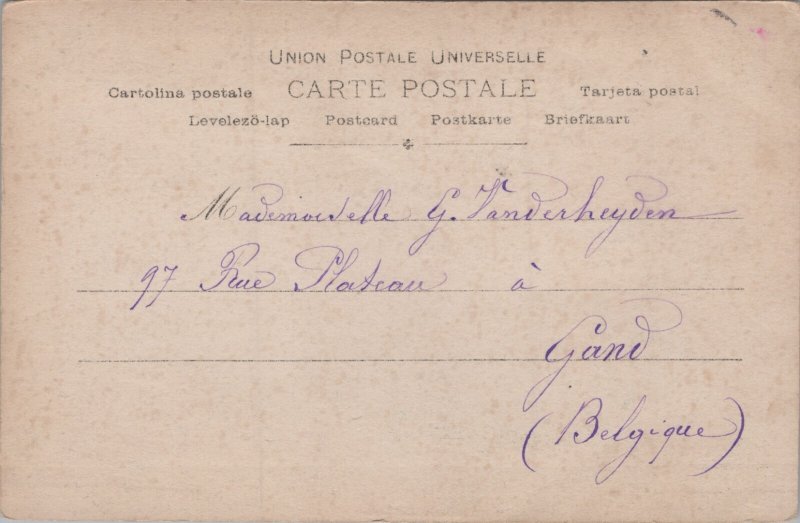 UNION POSTALE UNIVERSELLE
Cartolina postale CARTE POSTALE Tarjeta postal
Levelezö-lap Postcard Postkarte Briefkaart
Mademoiselle G. Vanderheyden
97 Rue Plateau à
Gand
(Belgique)